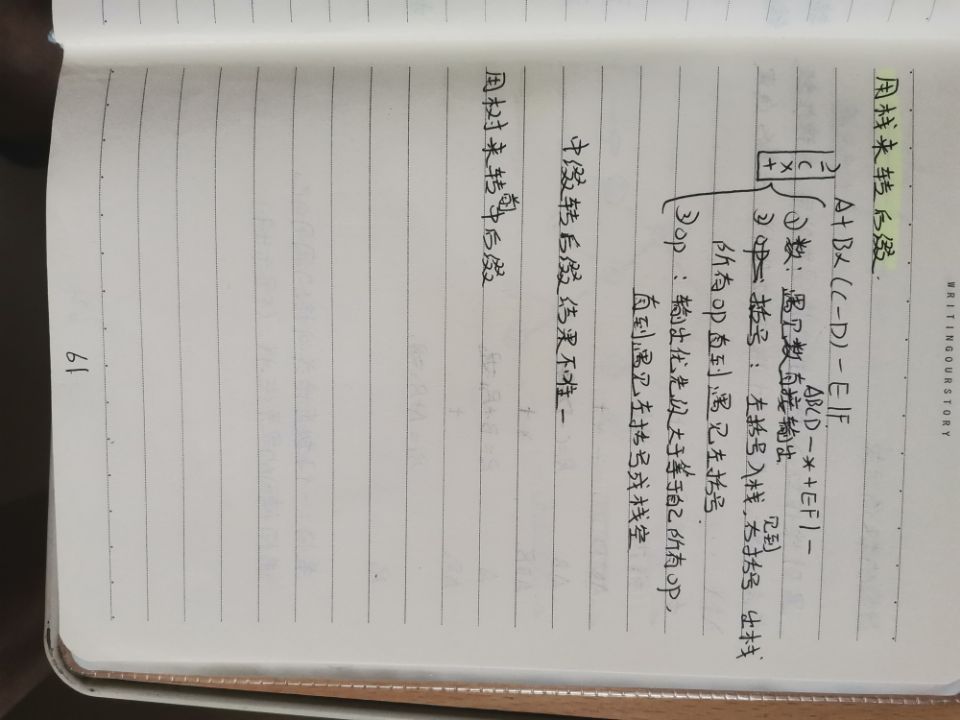 WRITINGOURSTORY
用栈来转后缀.
A+B×(C-D)-E/F
ABCD-*+EF/-
①数:遇见数直接输出
②括号:左括号入栈,见到右括号出栈
所有op直到遇见左括号
③op:输出优先级大于等于自己所有op,
直到遇见左括号或栈空
-
(
×
+
中缀转后缀结果不唯一
用树来转前中后缀
61